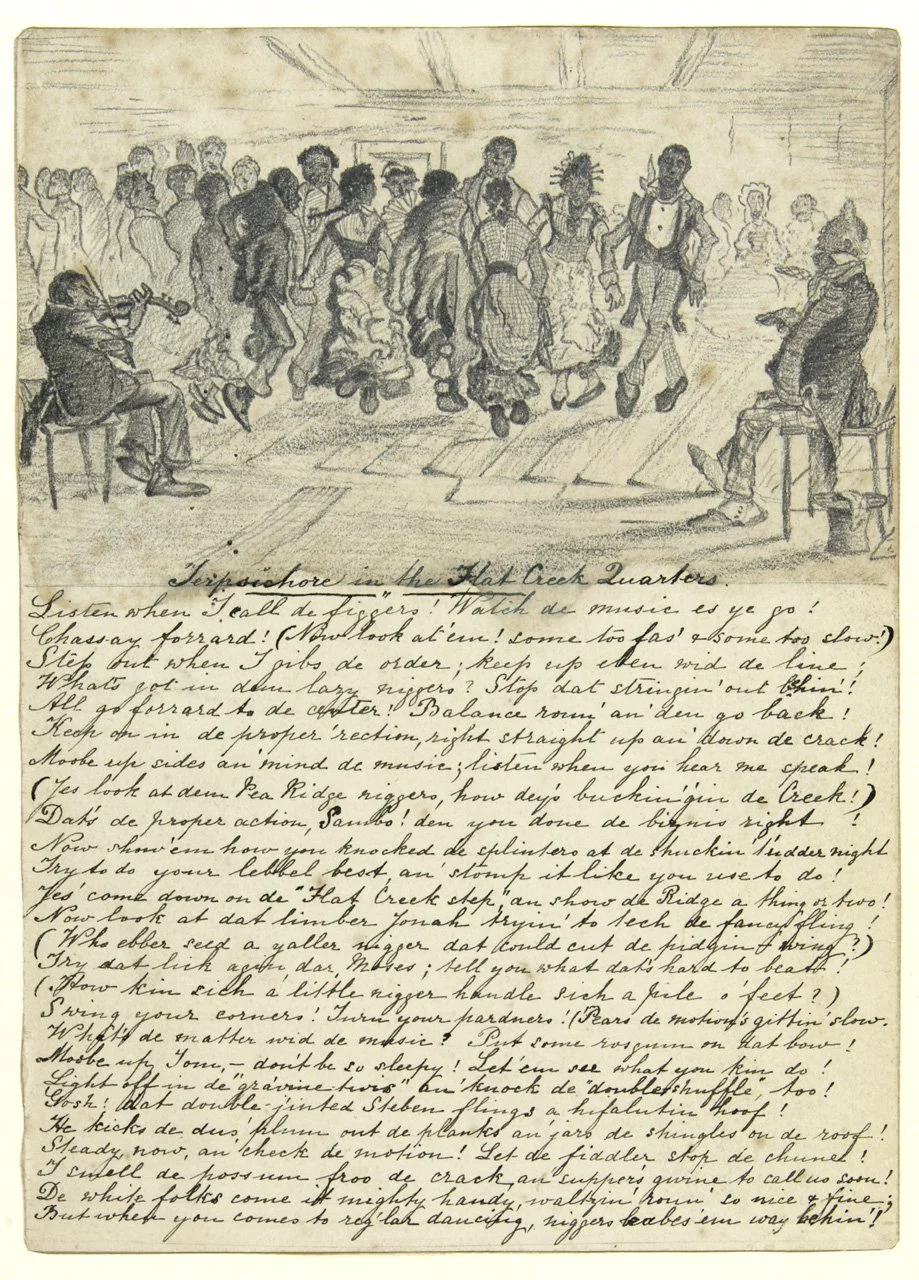 "Terpsichore in the Flat Creek Quarters".
Listen when I call de figgers! Watch de music es ye go!
Chassay forrard! (Now look at 'em! some too fas' & some too slow!)
Step out when I gibs de order; keep up eben wid de line;
What's got in dem lazy niggers? Stop dat stringin' out behin'!
All go forrard to de center! Balance roun' an' den go back!
Keep on in de proper 'rection, right straight up an' down de crack!
Moobe up sides an' mind de music; listen when you hear me speak!
(Jes look at dem Pea Ridge niggers, how dey's buckin' 'gin de Creek!)
Dat's de proper action, Sambo! den you done de bizness right!
Now show 'em how you knocked de splinters at de shuckin' tudder night
Try to do your lebbel best, an' stomp it like you use to do!
Jes' come down on de "Flat Creek step," an show de Ridge a thing or two!
Now look at dat limber Jonah tryin' to tech de fancy fling!
(Who ebber seed a yaller nigger dat could cut de pidgin-wing?)
Try dat lick agin, dar, Moses; tell you what dat's hard to beat!
(How kin sich a little nigger handle sich a pile o' feet?)
Swing your corners! Turn your pardners! (Pears de motion's gittin' slow.
What's de matter wid de music? Put some rosgum on dat bow!
Moobe up, Tom,- don't be so sleepy! Let 'em see what you kin do!
Light off in de "gra-vine twis'" an' knock de "double-shuffle," too!
Gosh! dat double-jinted Steben flings a hifalutin' hoof!
He kicks de dus' plum out de planks an' jars de shingles on de roof!
Steady, now, an' check de motion! Let de fiddler stop de chune!
I smell de possum froo de crack, an supper's gwine to call us soon!
De white folks come it mighty handy, waltzin' roun' so nice & fine;
But when you comes to reg'lar dancing, niggers leabes 'em way behin'!